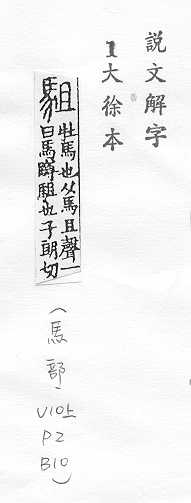 說文解字
1大徐本
駔
牡馬也从馬且聲一
曰馬蹲駔也子朗切
(馬部,
V10上
P2
B10)